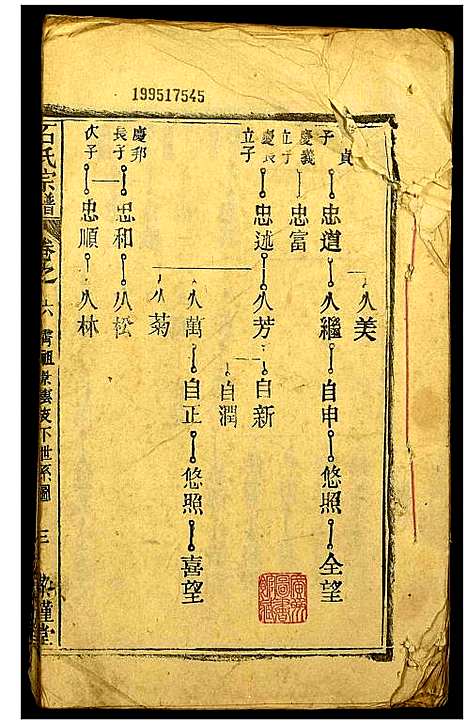 199517545
貞
子
忠道 八繼 自申 悠照 全望
八美
慶義
立子
忠富
慶長
立子
忠述 八芳 自新
自潤
八萬 自正 悠照 喜望
八菊
慶邦
長子
忠和 八松
次子
忠順 八林
石氏宗譜
卷之
六 霄祖
支下世系圖
三
堂